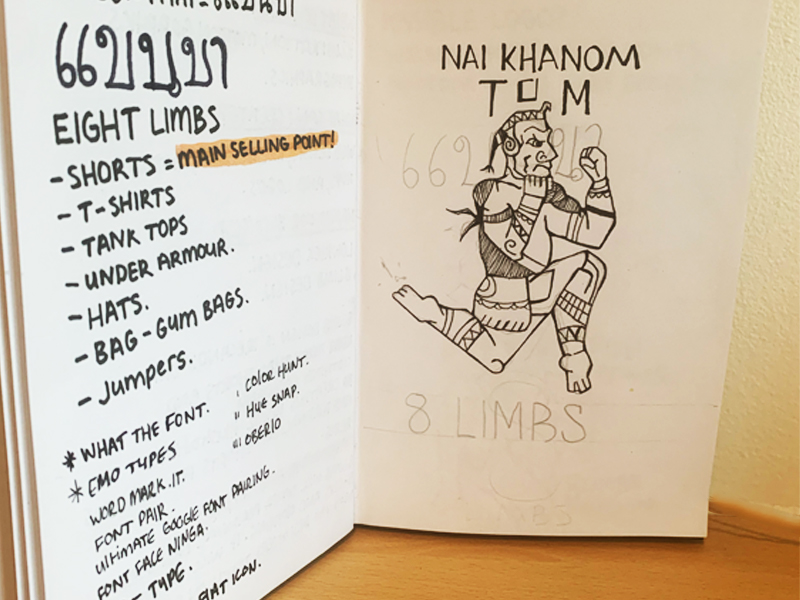 แขนขา
EIGHT LIMBS
- SHORTS = MAIN SELLING POINT!
- T-SHIRTS
- TANK TOPS
- UNDER ARMOUR.
- HATS.
- BAG - GUM BAGS.
- Jumpers.
* WHAT THE FONT.
* EMO TYPES
WORD MARK.IT.
FONT PAIR.
ULTIMATE GOOGLE FONT PAIRING.
FONT FACE NINGA.
TYPE.
FLAT ICON.
ı COLOR HUNT.
ıı HUE SNAP.
ııı OBERLO
NAI KHANOM
TOM
8 LIMBS